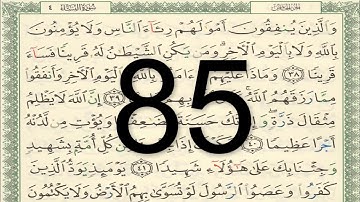 سُورَةُ النِّسَاءِ ٤
وَالَّذِينَ يُنفِقُونَ أَمْوَٰلَهُمْ رِئَآءَ النَّاسِ وَلَا يُؤْمِنُونَ
بِاللَّهِ وَلَا بِالْيَوْمِ الْءَاخِرِ وَمَن يَكُنِ الشَّيْطَٰنُ لَهُۥ قَرِينًا فَسَآءَ
قَرِينًا ٣٨ وَمَاذَا عَلَيْهِمْ بِاللَّهِ وَالْيَوْمِ الْءَاخِرِ وَأَنفَقُوا۟
مِمَّا رَزَقَهُمُ اللَّهُ ٣٩ إِنَّ اللَّهَ لَا يَظْلِمُ
مِثْقَالَ ذَرَّةٍ وَإِن تَكُ حَسَنَةً وَيُؤْتِ مِن لَّدُنْهُ
أَجْرًا عَظِيمًا ٤٠ كُلِّ أُمَّةٍۭ بِشَهِيدٍ
وَجِئْنَا بِكَ عَلَىٰ هَٰٓؤُلَآءِ شَهِيدًا ٤١ يَوْمَئِذٍ يَوَدُّ الَّذِينَ
كَفَرُوا۟ وَعَصَوُا۟ الرَّسُولَ لَوْ تُسَوَّىٰ بِهِمُ الْأَرْضُ وَلَا يَكْتُمُونَ
85